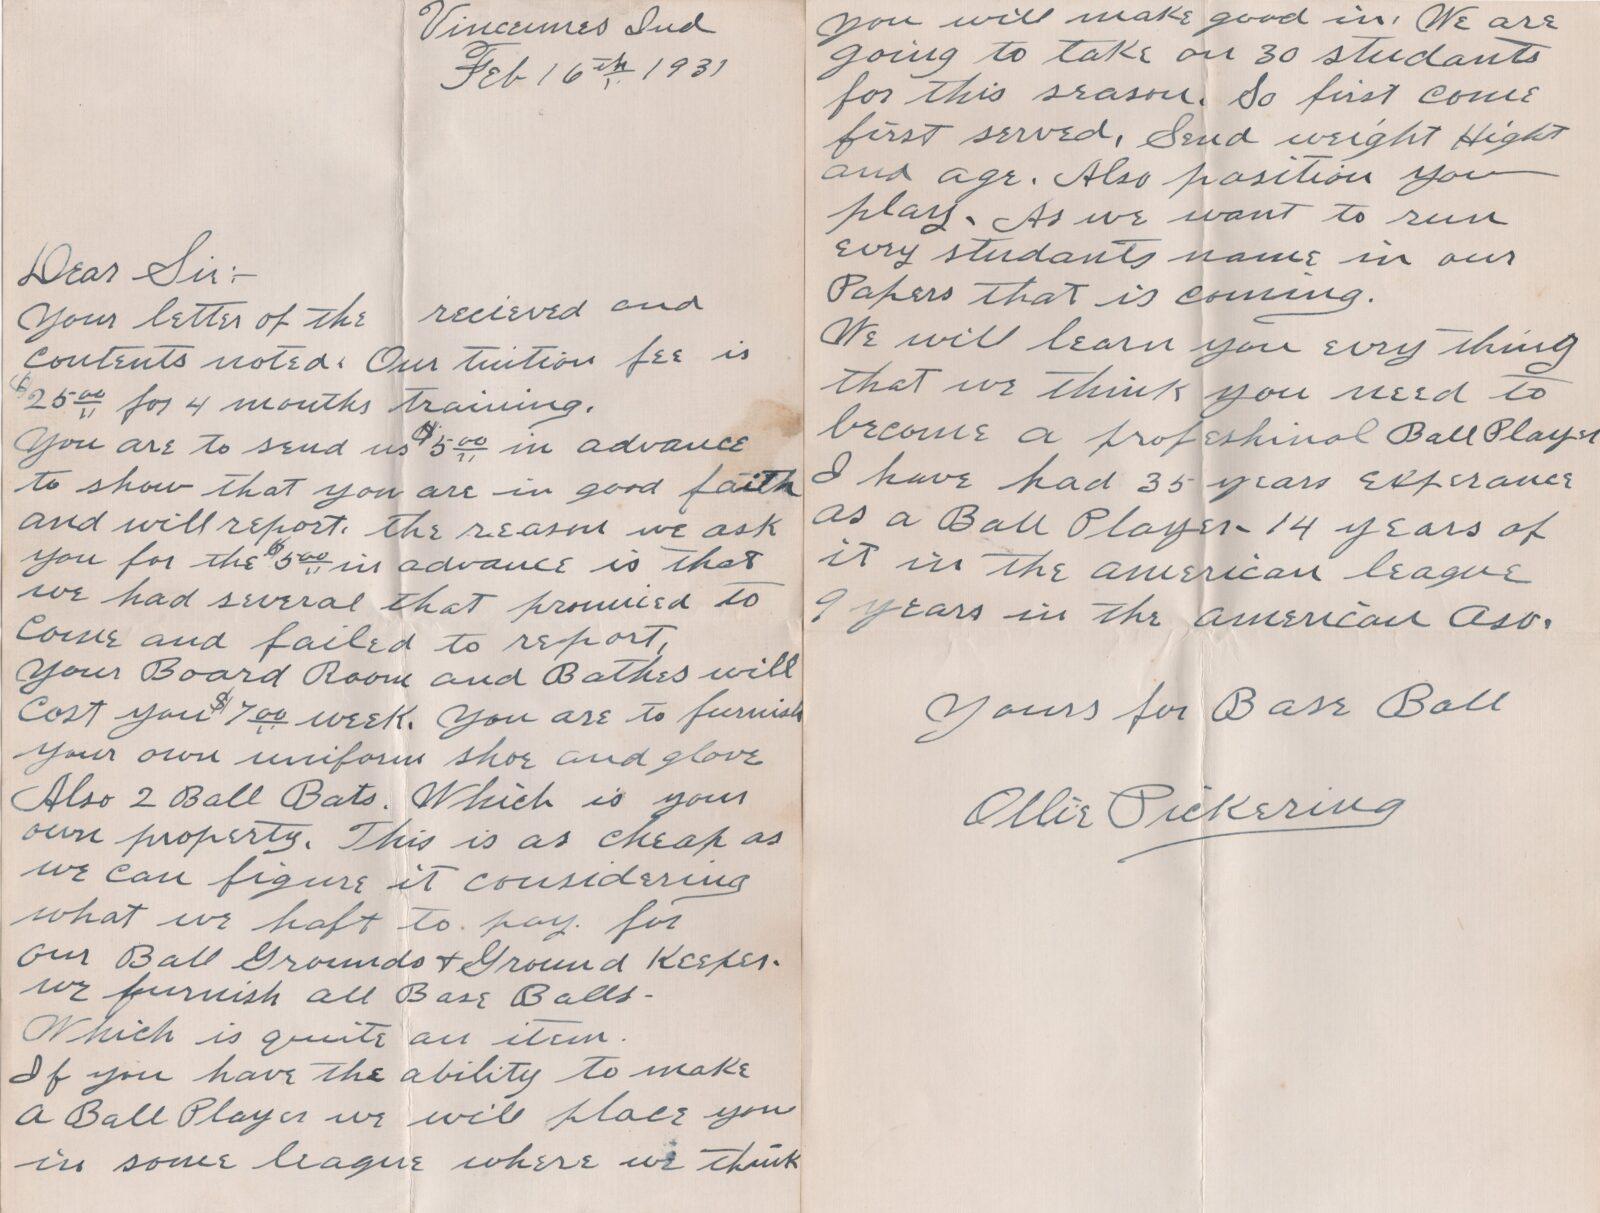 Vincennes Ind
Feb 16th 1931
Dear Sir:-
Your letter of the recieved and
contents noted. Our tuition fee is
$25.00 for 4 months training.
You are to send us $5.00 in advance
to show that you are in good faith
and will report. the reason we ask
you for the $5.00 in advance is that
we had several that promised to
come and failed to report.
Your Board Room and Bathes will
cost you $7.00 week. You are to furnish
your own uniform shoe and glove
Also 2 Ball Bats. Which is your
own property. This is as cheap as
we can figure it considering
what we haft to pay. for
our Ball Grounds & Ground Keeper.
we furnish all Base Balls-
Which is quite an item.
If you have the ability to make
a Ball Player we will place you
in some league where we think
you will make good in. We are
going to take on 30 students
for this season. So first come
first served. Send weight Hight
and age. Also position you
play. As we want to run
evry students name in our
Papers that is coming.
We will learn you evry thing
that we think you need to
become a profeshinal Ball Player
I have had 35 years experance
as a Ball Player- 14 years of
it in the american league
9 years in the american Aso.
Yours for Base Ball
Ollie Pickering